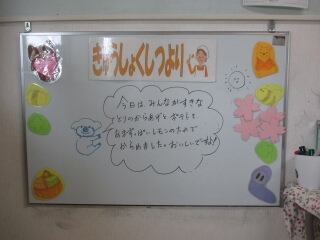 きゅうしょくしつより
今日は、みんながすきな
とりのからあげと おやしと
あまずっぱいレモンのたれで
からめました。おいしいですね!